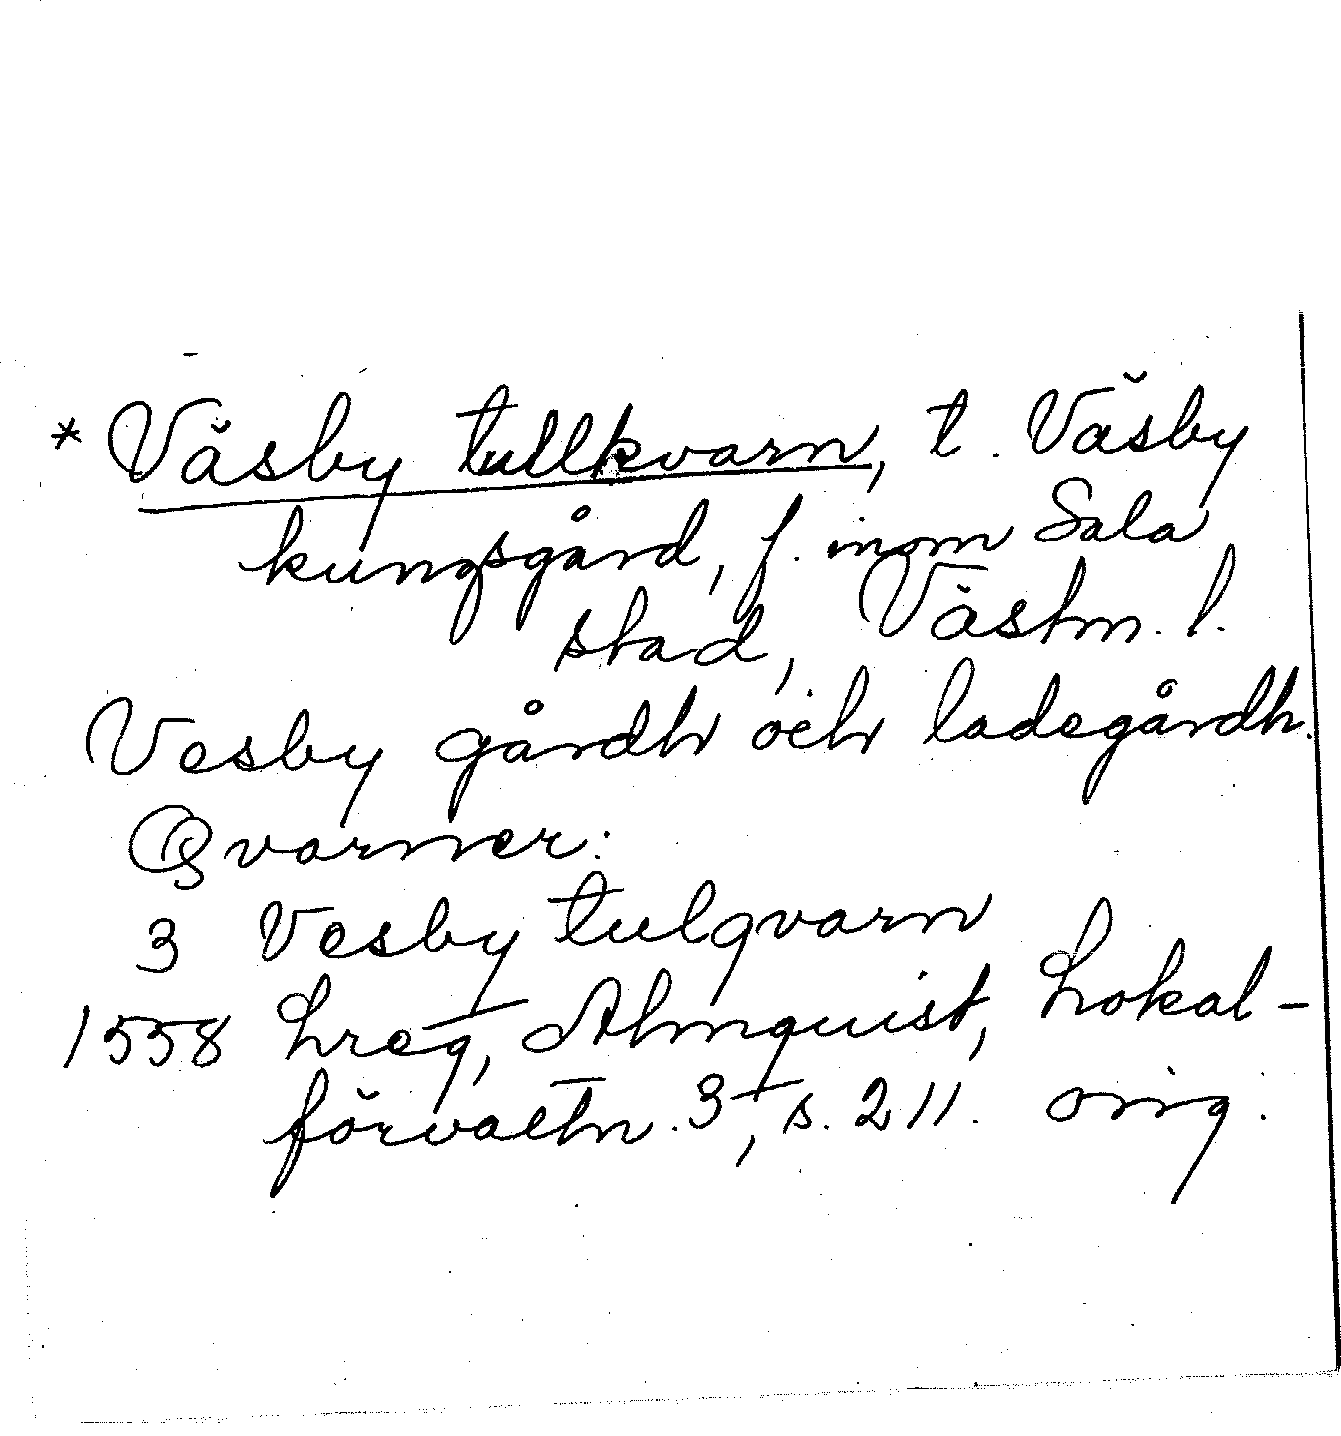 * Väsby tullkvarn, t. Väsby
kungsgård, f. inom Sala
stad, Västm. l.
Vesby gårdh och ladegårdh.
Qvarner:
3 Vesby tulqvarn
1558 Lreg, Almquist, Lokal-
förvaltn. 3, s. 211. orig.